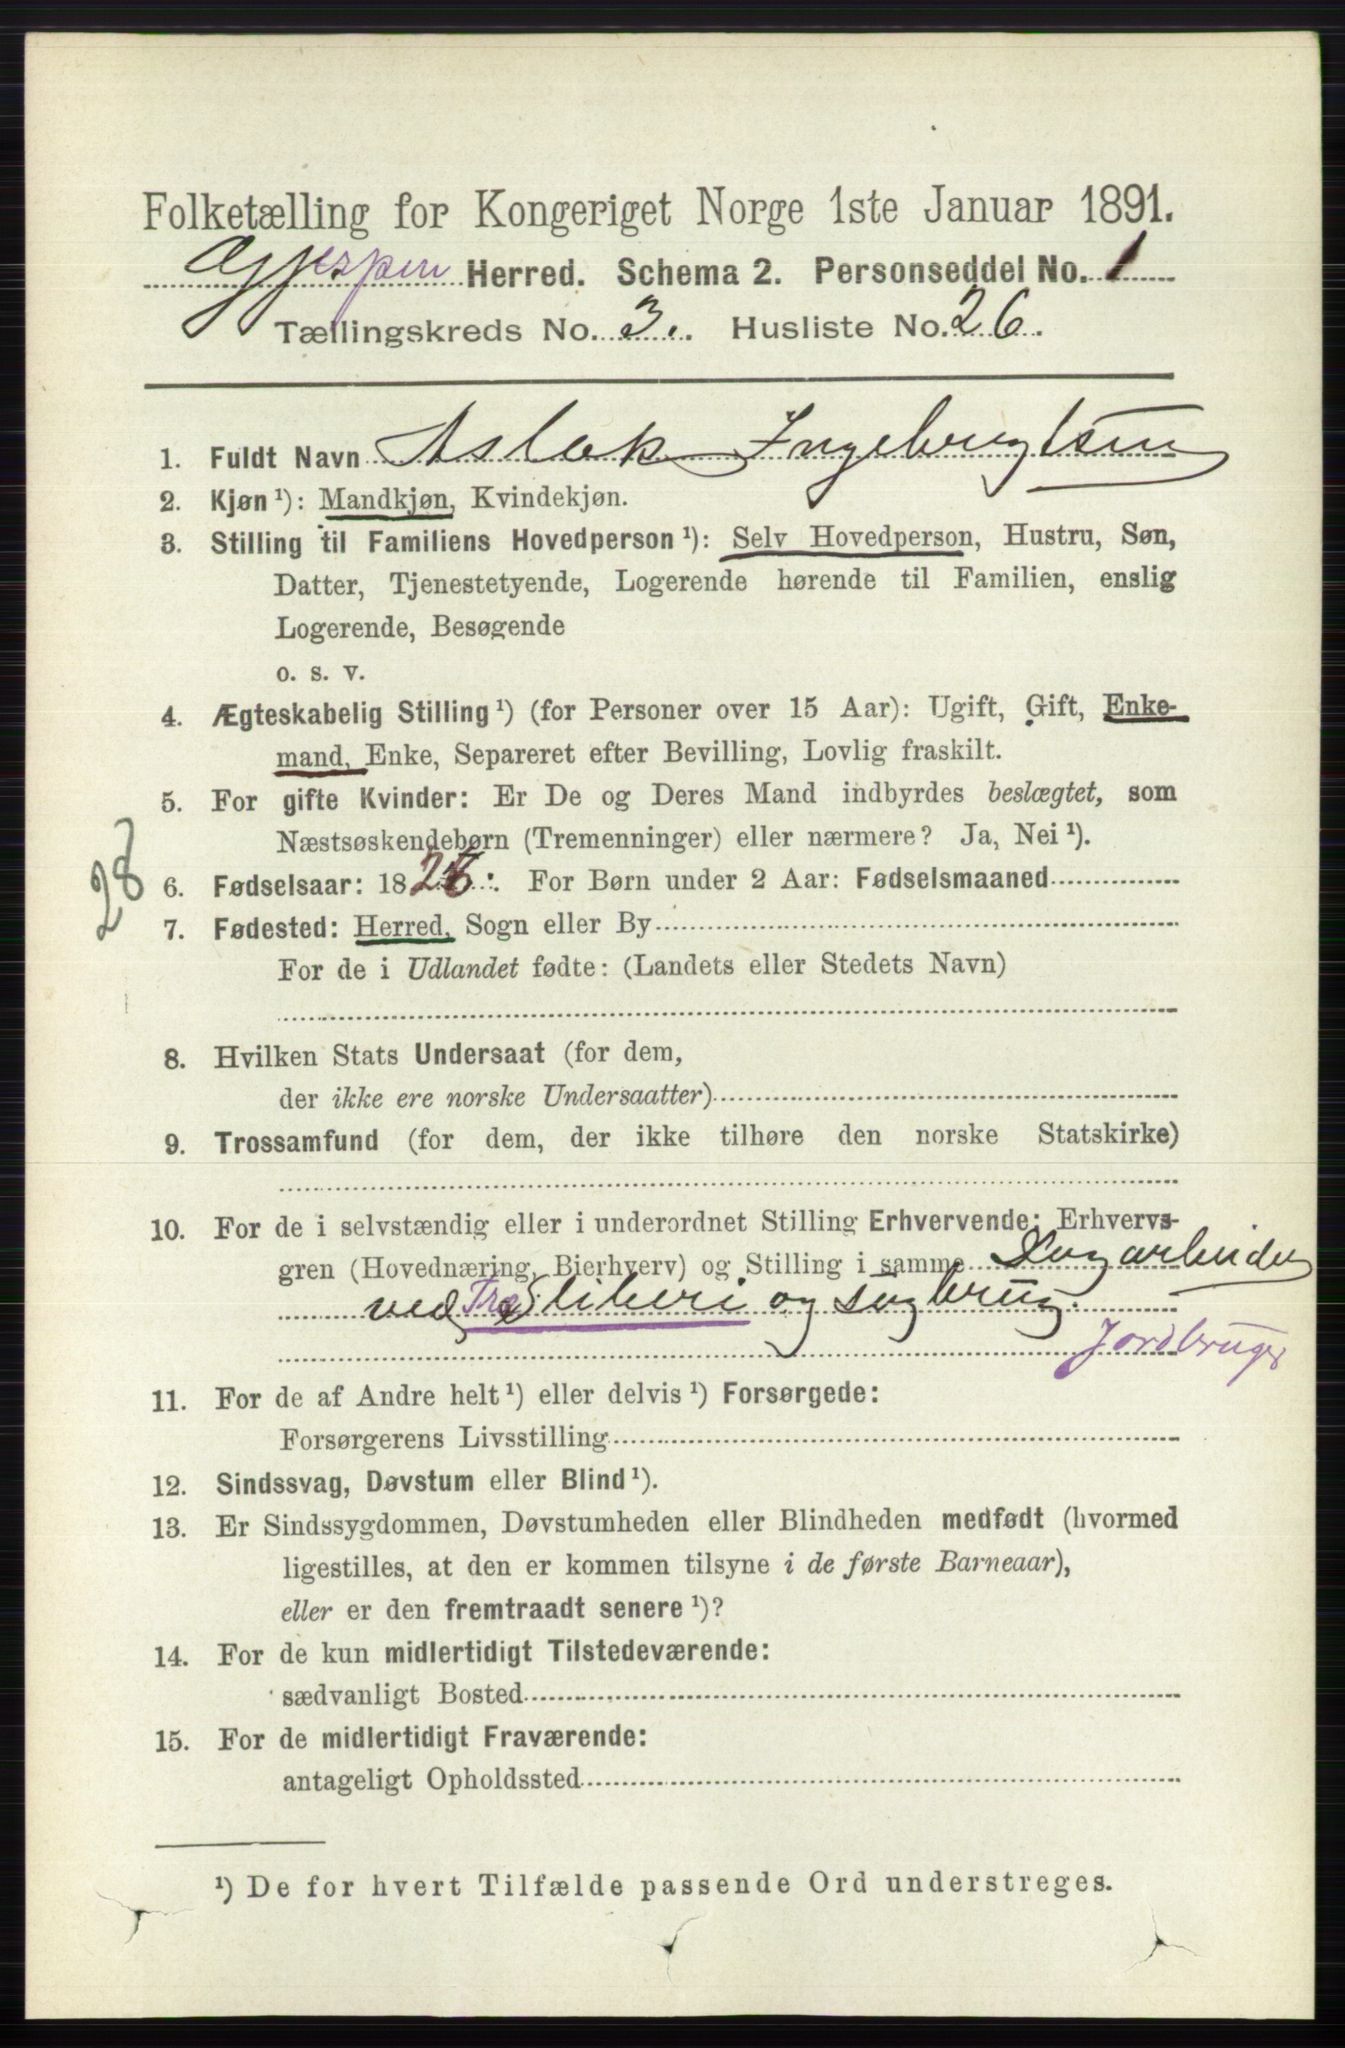 Folketælling for Kongeriget Norge 1ste Januar 1891.
Gjerpen Herred. Schema 2. Personseddel No. 1
Tællingskreds No. 3. Husliste No. 26.
1. Fuldt Navn Aslak Ingebrugtsen
2. Kjøn ¹): Mandkjøn, Kvindekjøn.
3. Stilling til Familiens Hovedperson ¹): Selv Hovedperson, Hustru, Søn,
Datter, Tjenestetyende, Logerende hørende til Familien, enslig
Logerende, Besøgende
o. s. v.
4. Ægteskabelig Stilling ¹) (for Personer over 15 Aar): Ugift, Gift, Enke-
mand, Enke, Separeret efter Bevilling, Lovlig fraskilt.
5. For gifte Kvinder: Er De og Deres Mand indbyrdes beslægtet, som
Næstsøskendebørn (Tremenninger) eller nærmere? Ja, Nei ¹).
28
6. Fødselsaar: 18 For Børn under 2 Aar: Fødselsmaaned
7. Fødested: Herred, Sogn eller By
For de i Udlandet fødte: (Landets eller Stedets Navn)
8. Hvilken Stats Undersaat (for dem,
der ikke ere norske Undersaatter)
9. Trossamfund (for dem, der ikke tilhøre den norske Statskirke)
10. For de i selvstændig eller i underordnet Stilling Erhvervende: Erhvervs-
gren (Hovednæring, Bierhverv) og Stilling i samme
ved Træsliberi og Sagbrug.
Jordbruger
11. For de af Andre helt ¹) eller delvis ¹) Forsørgede:
Forsørgerens Livsstilling
12. Sindssvag, Døvstum eller Blind ¹).
13. Er Sindssygdommen, Døvstumheden eller Blindheden medfødt (hvormed
ligestilles, at den er kommen tilsyne i de første Barneaar),
eller er den fremtraadt senere ¹)?
14. For de kun midlertidigt Tilstedeværende:
sædvanligt Bosted
15. For de midlertidigt Fraværende:
antageligt Opholdssted
¹) De for hvert Tilfælde passende Ord understreges.